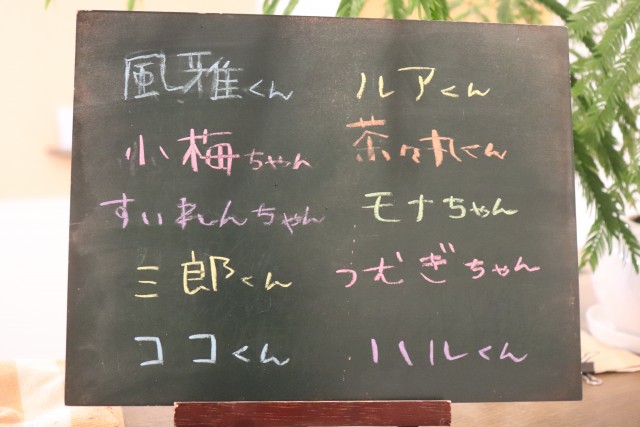 風雅くん ルアくん
小梅ちゃん 茶々丸くん
すいれんちゃん モナちゃん
三郎くん つむぎちゃん
ココくん ハルくん